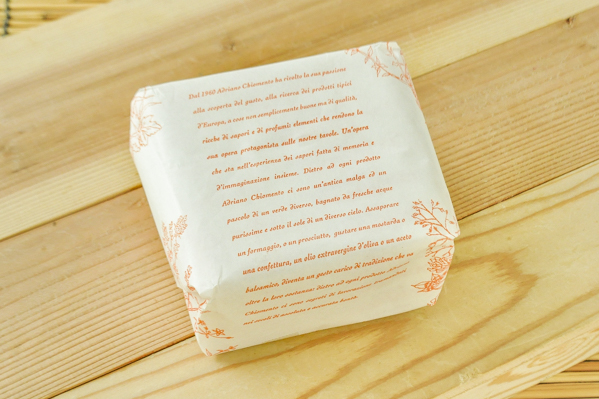 Dal 1940 Adriano Chiomento ha rivolto la sua passione
alla scoperta del gusto, alla ricerca dei prodotti tipici
d'Europa, a cose non semplicemente buone ma di qualità,
ricche di sapori e di profumi: elementi che rendono la
sua opera protagonista sulle nostre tavole. Un'opera
che sta nell'esperienza dei sapori fatta di memoria e
d'immaginazione insieme. Dietro ad ogni prodotto
Adriano Chiomento ci sono un'antica malga ed un
pascolo di un verde diverso, bagnato da fresche acque
purissime e sotto il sole di un diverso cielo. Assaporare
un formaggio, o un prosciutto, gustare una mostarda o
una confettura, un olio extravergine d'oliva o un aceto
balsamico, diventa un gesto carico di tradizione che va
oltre la loro sostanza: dietro ad ogni prodotto Adriano
Chiomento ci sono segreti di lavorazioni